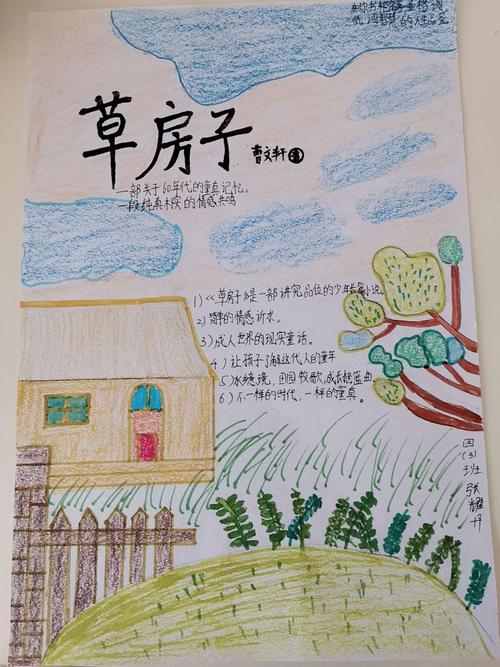 在你书柜
低调智慧的人生品鉴
草房子
曹文轩 著
一部关于60年代的童真记忆,
一段纯真朴实的情感共鸣
1)《草房子》是一部讲究品位的少年长篇小说。
2)简单的情感诉求。
3)成人世界的现实童话。
4)让孩子了解这代人的童年
5)水缠境,田园牧歌,成长摇篮曲。
6)不一样的时代,一样的童真。
四(3)班 张